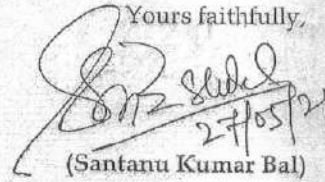 Yours faithfully,
27/05/21
(Santanu Kumar Bal)